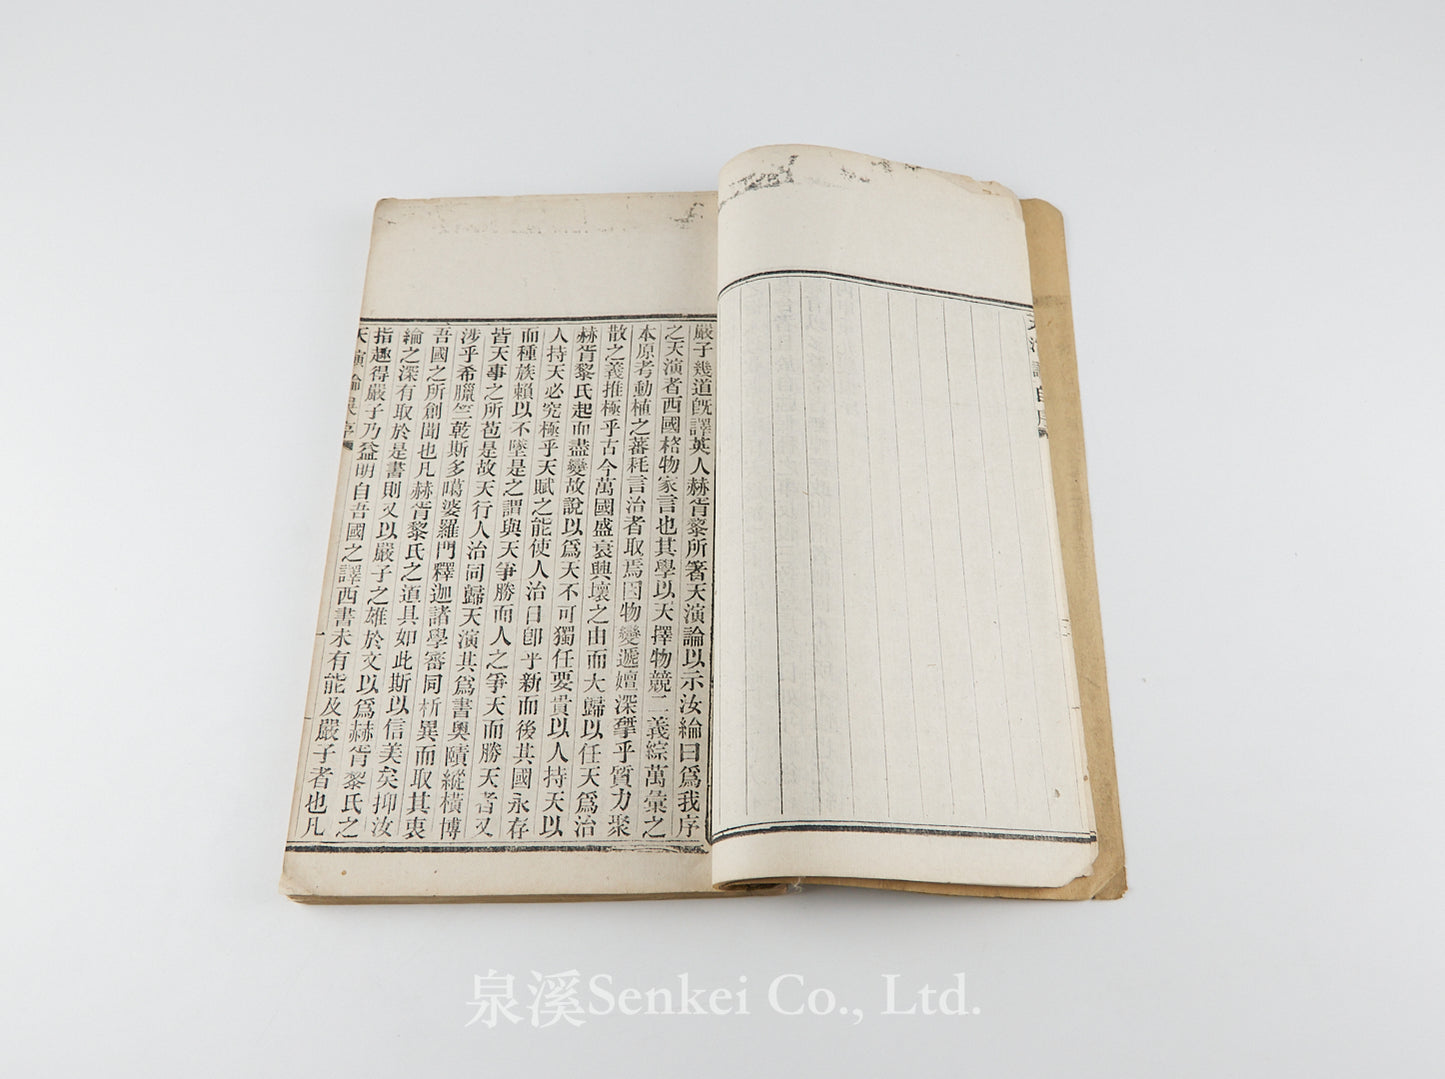 天演論自序
嚴子幾道旣譯英人赫胥黎所箸天演論以示汝綸曰爲我序
之天演者西國格物家言也其學以天擇物競二義綜萬彙之
本原考動植之蕃耗言治者取焉因物變遞嬗深揅乎質力聚
散之義推極乎古今萬國盛衰興壞之由而大歸以任天爲治
赫胥黎氏起而盡變故說以爲天不可獨任要貴以人持天以
人持天必究極乎天賦之能使人治日卽乎新而後其國永存
而種族賴以不墜是之謂與天爭勝而人之爭天而勝天者又
皆天事之所苞是故天行人治同歸天演其爲書奧賾縱橫博
涉乎希臘竺乾斯多噶婆羅門釋迦諸學審同析異而取其衷
吾國之所創聞也凡赫胥黎氏之道具如此斯以信美矣抑汝
綸之深有取於是書則又以嚴子之雄於文以爲赫胥黎氏之
指趣得嚴子乃益明自吾國之譯西書未有能及嚴子者也凡
天演論吳序
泉溪Senkei Co., Ltd.